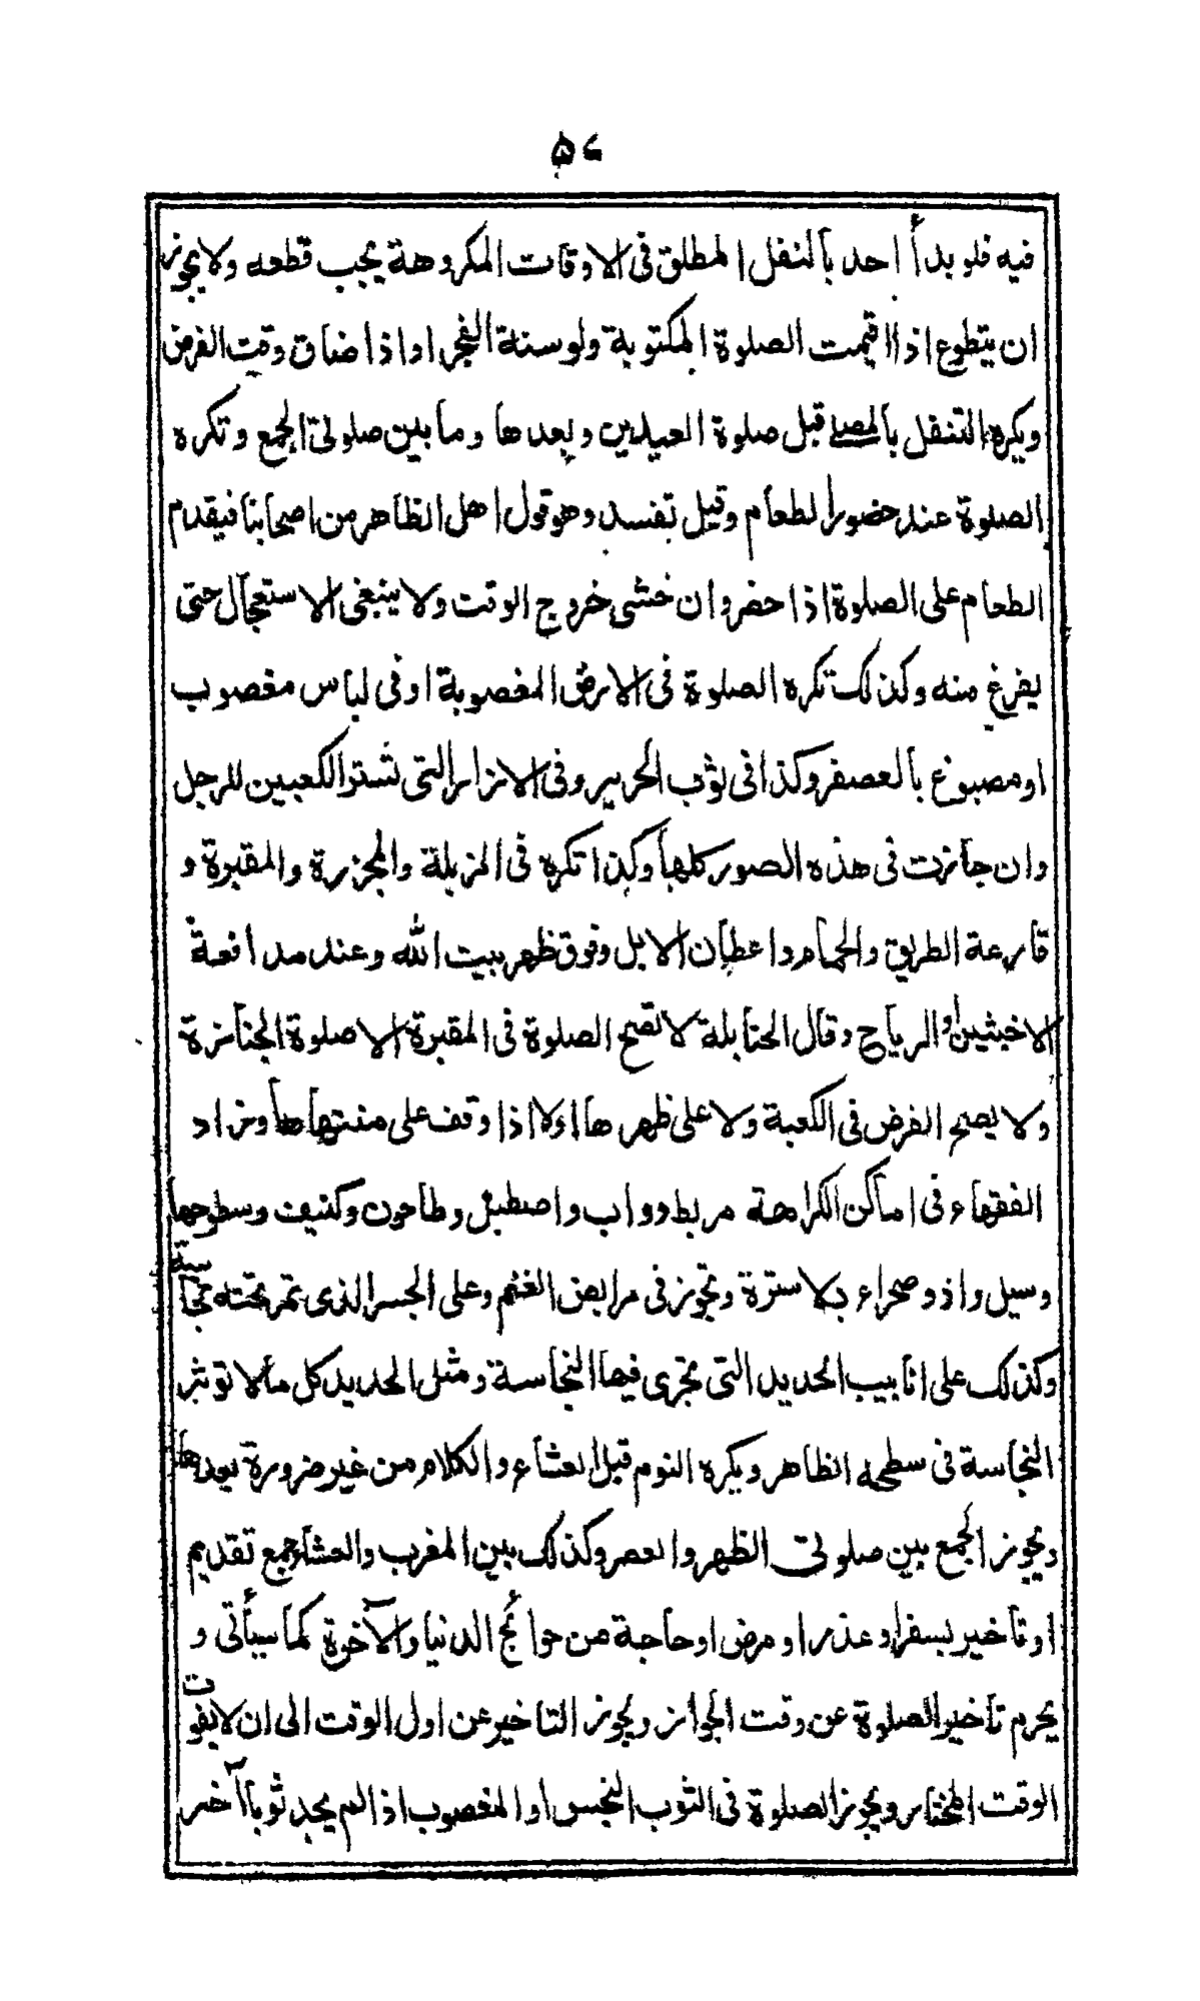 ۵۷
فيه فلو بدأ احد بالنفل المطلق فى الاوقات المكروهة يجب قطعه ولا يجوز
ان يتطوع اذا اقيمت الصلوة المكتوبة ولو سنة الفجر او اذا ضاق وقت الفرض
ويكره التنفل بالمصلى قبل صلوة العيدين وبعدها وما بين صلوتى الجمع وتكره
الصلوة عند حضور الطعام وقيل تفسد وهو قول اهل الظاهر من اصحابنا فيقدم
الطعام على الصلوة اذا حضر وان خشى خروج الوقت ولا ينبغى الاستعجال حتى
يفرغ منه وكذلك تكره الصلوة فى الارض المغصوبة او فى لباس مغصوب
او مصبوغ بالعصفر وكذا فى ثوب الحرير وفى الازار التى تستر الكعبين للرجل
وان جازت فى هذه الصور كلها وكذا تكره فى المزبلة والمجزرة والمقبرة و
قارعة الطريق والحمام واعطان الابل وفوق ظهر بيت الله وعند مدافعة
الاخبثين او الرياح وقال الحنابلة لا تصح الصلوة فى المقبرة الا صلوة الجنازة
ولا يصح الفرض فى الكعبة ولا على ظهرها الا اذا وقف على منتهاها وزاد
الفقهاء فى اماكن الكراهة مربط دواب واصطبل وطاحون وكنيف وسطوحها
وسيل واذ وصحراء بلا سترة وتجوز فى مرابض الغنم وعلى الجسر الذى تمر تحته نجاسة
وكذلك على انابيب الحديد التى تجرى فيها النجاسة ومثل الحديد كل ما لا تؤثر
النجاسة فى سطحه الظاهر ويكره النوم قبل العشاء والكلام من غير ضرورة بعدها
ويجوز الجمع بين صلوتى الظهر والعصر وكذلك بين المغرب والعشاء جمع تقديم
او تاخير بسفر او عذر او مرض او حاجة من حوائج الدنيا والآخرة كما سيأتى و
يحرم تاخير الصلوة عن وقت الجواز ويجوز التاخير عن اول الوقت الى ان لا يفوت
الوقت المختار ويجوز الصلوة فى الثوب النجس او المغصوب اذا لم يجد ثوبا آخر